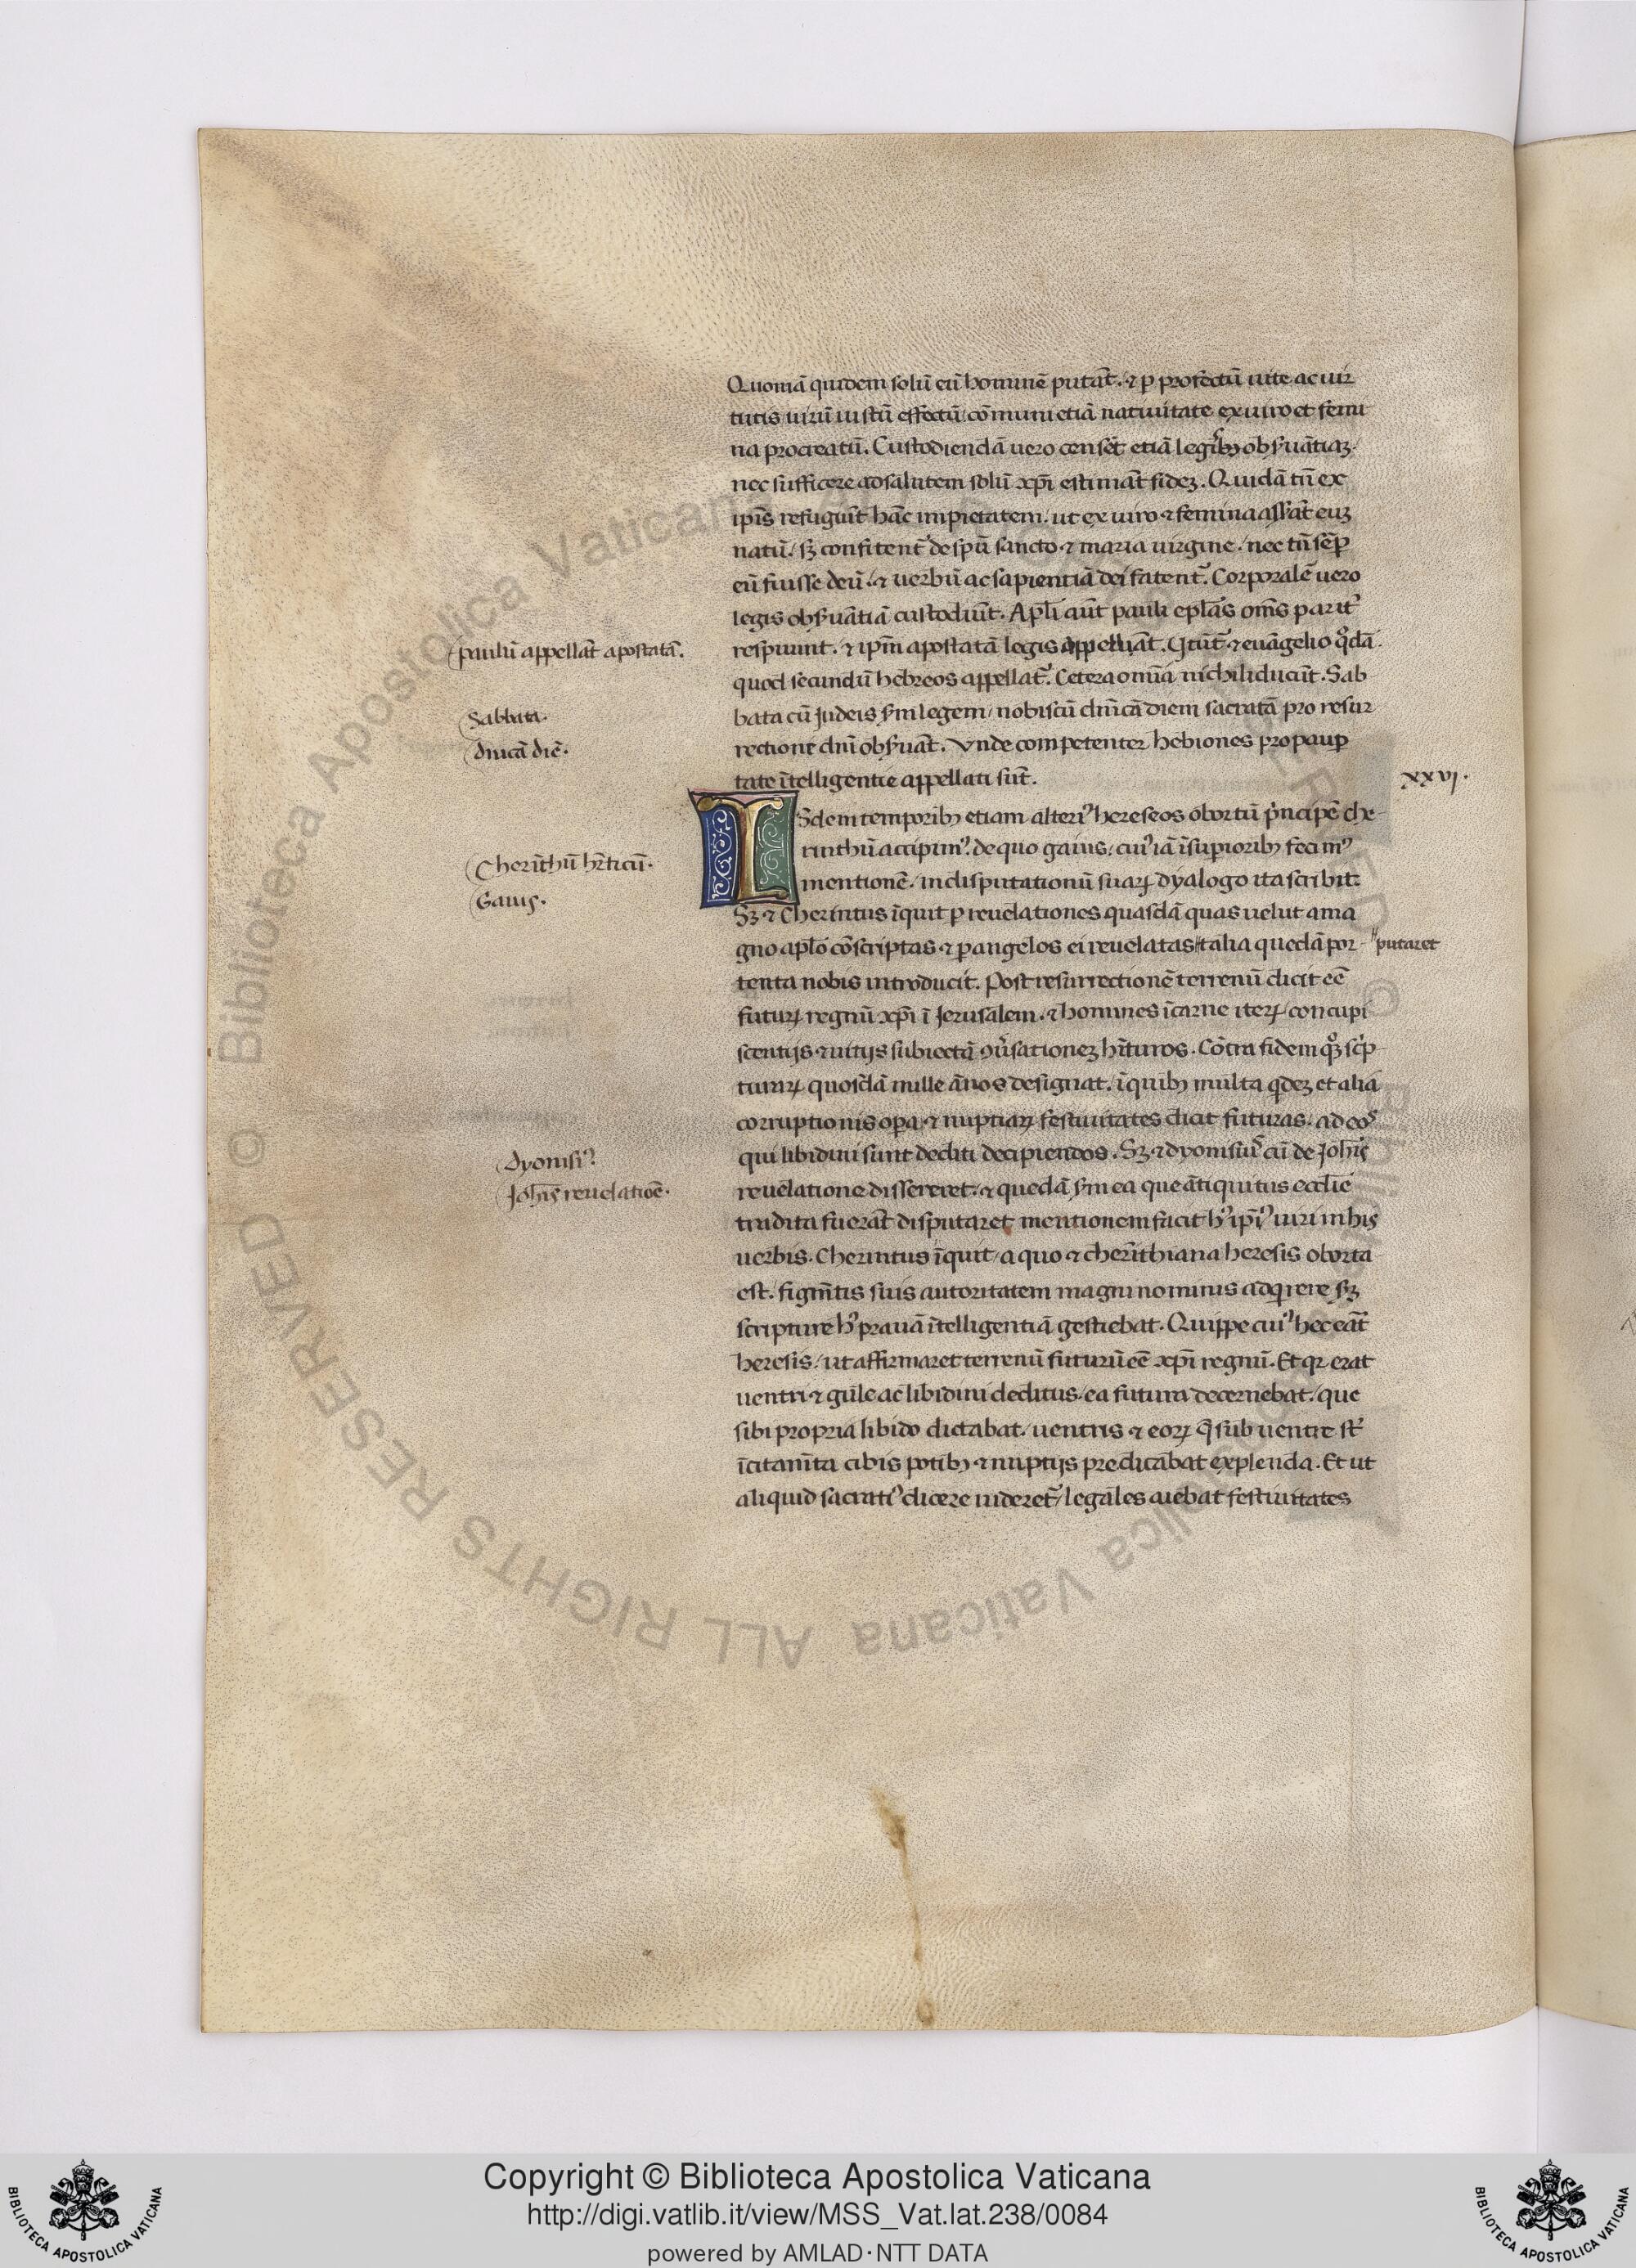 Quoniā quidem solū eū hominē putāt. ⁊ p̱ profectū uite ac uir
tutis uirū iustū effectū cōmuni etiā natiuitate ex uiro et femi
na procreatū. Custodiendā uero censēt etiā legibꝫ obſuātiaꝫ.
nec sufficere ad salutem solū xp̄i estimāt fideꝫ. Quidā tn̄ ex
ip̄is refugiūt hāc impietatem. ut ex uiro ⁊ femina asserāt euꝫ
natū. sꝫ confitent᷑ de sp̄ū sancto ⁊ maria uirgine. nec tn̄ sēp̱
eū fuisse deū. ⁊ uerbū ac sapientiā dei fatent᷑. Corporalē uero
legis obſuātiā custodiūt. Apl̄i aūt pauli epl̄as om̄s parit᷑
respuunt. ⁊ ip̄m apostatā legis appellāt. Vtūt᷑ ⁊ euāgelio qͦdā
quod secundū hebreos appellat᷑. Cetera omīa nichili ducūt. Sab
bata cū Judeis ẜm legem nobiscū dn̄icā diem sacratā pro resur
rectione dn̄i obſuāt. Vnde competenter hebiones pro paup̱
tate ītelligentie appellati sūt.
xxvj.
ISdem temporibꝫ etiam alteriꝰ hereseos obortū p͛ncipē che
rinthū accipimꝰ. de quo gaius. cuiꝰ iā ī supioribꝫ fecimꝰ
mentionē. in disputationū suaꝝ dyalogo ita scribit.
Sꝫ ⁊ Cherintus īquit p̱ reuelationes quasdā quas uelut a ma
gno apl̄o cōscriptas ⁊ p̱ angelos ei reuelatas talia quedā por
putaret
tenta nobis introducit. Post resurrectionē terrenū dicit eē
futuꝝ regnū xp̄i ī Jerusalem. ⁊ homines ī carne iteꝝ concupi
scentijs ⁊ uitijs subiectā ꝯūsationeꝫ hīturos. Cōtra fidem qͦꝫ sc͛p
turaꝝ quosdā mille ānos designat. ī quibꝫ multa qͥdeꝫ et alia
corruptionis op̱a ⁊ nuptiaꝝ festiuitates dicit futuras. ad eos
qui libidini sunt dediti decipiendos. Sꝫ ⁊ dyonisiuˢ cū de Joh̄is
reuelatione dissereret. ⁊ quedā ẜm ea que ātiquitus eccl̄ie
tradita fuerāt disputaret mentionem facit hꝰ ip̄iꝰ uiri in his
uerbis. Cherintus īquit a quo ⁊ cherīthiana heresis oborta
est. figm̄tis suis autoritatem magni nominis adqͥrere sꝫ
scripture hꝰ prauā ītelligentiā gestiebat. Quippe cuiꝰ hec eāt
heresis. ut affirmaret terrenū futurū eē xp̄i regnū. Et qr erat
uentri ⁊ gule ac libidini deditus. ea futura decernebat. que
sibi propria libido dictabat. uentris ⁊ eoꝝ q̄ sub uentre st᷑
īcitam̄ta cibis potibꝫ ⁊ nuptijs predicabat explenda. Et ut
aliquid sacratiꝰ dicere uideret᷑ legales aiebat festiuitates
paulū appellāt apostatā.
Sabbata.
dn̄icā diē.
Cherīthū hr̄ticū.
Gaiuꝰ.
dyonisiꝰ.
Joh̄is reuelatiōe.
Biblioteca Apostolica Vaticana ALL RIGHTS RESERVED ©
Copyright © Biblioteca Apostolica Vaticana
http://digi.vatlib.it/view/MSS_Vat.lat.238/0084
powered by AMLAD·NTT DATA
BIBLIOTECA APOSTOLICA VATICANA
BIBLIOTECA APOSTOLICA VATICANA